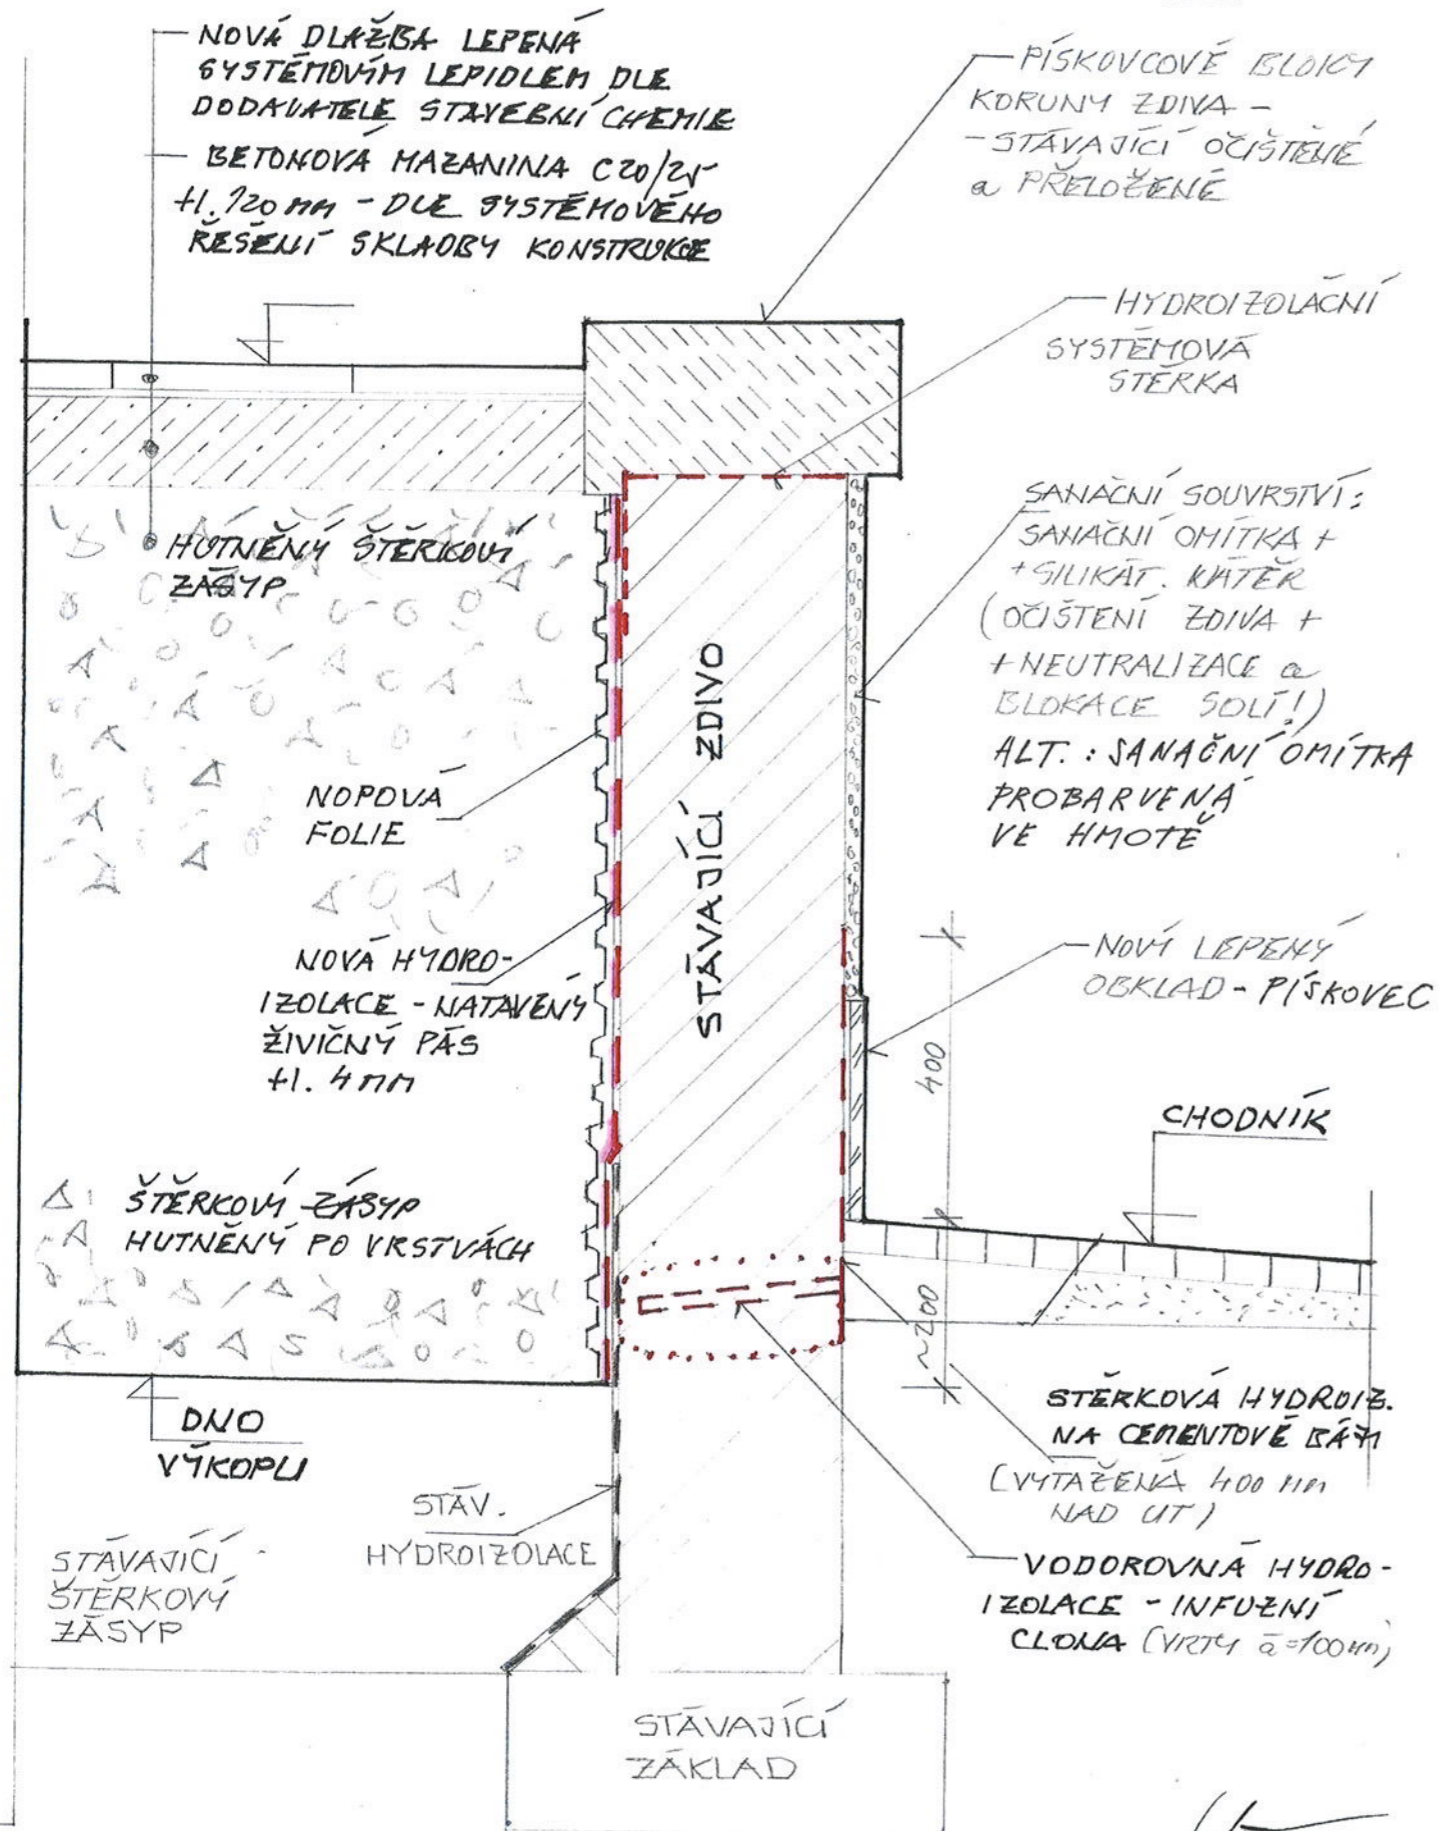 NOVÁ DLAŽBA LEPENÁ
SYSTÉMOVÝM LEPIDLEM DLE
DODAVATELE STAVEBNÍ CHEMIE
BETONOVÁ MAZANINA C20/25
tl. 120 mm - DLE SYSTÉMOVÉHO
ŘEŠENÍ SKLADBY KONSTRUKCE
PÍSKOVCOVÉ BLOKY
KORUNY ZDIVA -
- STÁVAJÍCÍ OČIŠTĚNÉ
a PŘELOŽENÉ
HYDROIZOLAČNÍ
SYSTÉMOVÁ
STĚRKA
SANAČNÍ SOUVRSTVÍ:
SANAČNÍ OMÍTKA +
+ SILIKÁT. NÁTĚR
(OČIŠTENÍ ZDIVA +
+ NEUTRALIZACE a
BLOKACE SOLÍ!)
ALT.: SANAČNÍ OMÍTKA
PROBARVENÁ
VE HMOTĚ
HUTNĚNÝ ŠTĚRKOVÝ
ZÁSYP
STÁVAJÍCÍ ZDIVO
NOPOVÁ
FOLIE
NOVÁ HYDRO-
IZOLACE - NATAVENÝ
ŽIVIČNÝ PÁS
tl. 4 mm
NOVÝ LEPENÝ
OBKLAD - PÍSKOVEC
400
CHODNÍK
ŠTĚRKOVÝ ZÁSYP
HUTNĚNÝ PO VRSTVÁCH
~200
DNO
VÝKOPU
STĚRKOVÁ HYDROIZ.
NA CEMENTOVÉ BÁZI
(VYTAŽENÁ 400 mm
NAD UT)
STÁV.
HYDROIZOLACE
STÁVAJÍCÍ
ŠTĚRKOVÝ
ZÁSYP
VODOROVNÁ HYDRO-
IZOLACE - INFUZNÍ
CLONA (VRTY á=100mm)
STÁVAJÍCÍ
ZÁKLAD